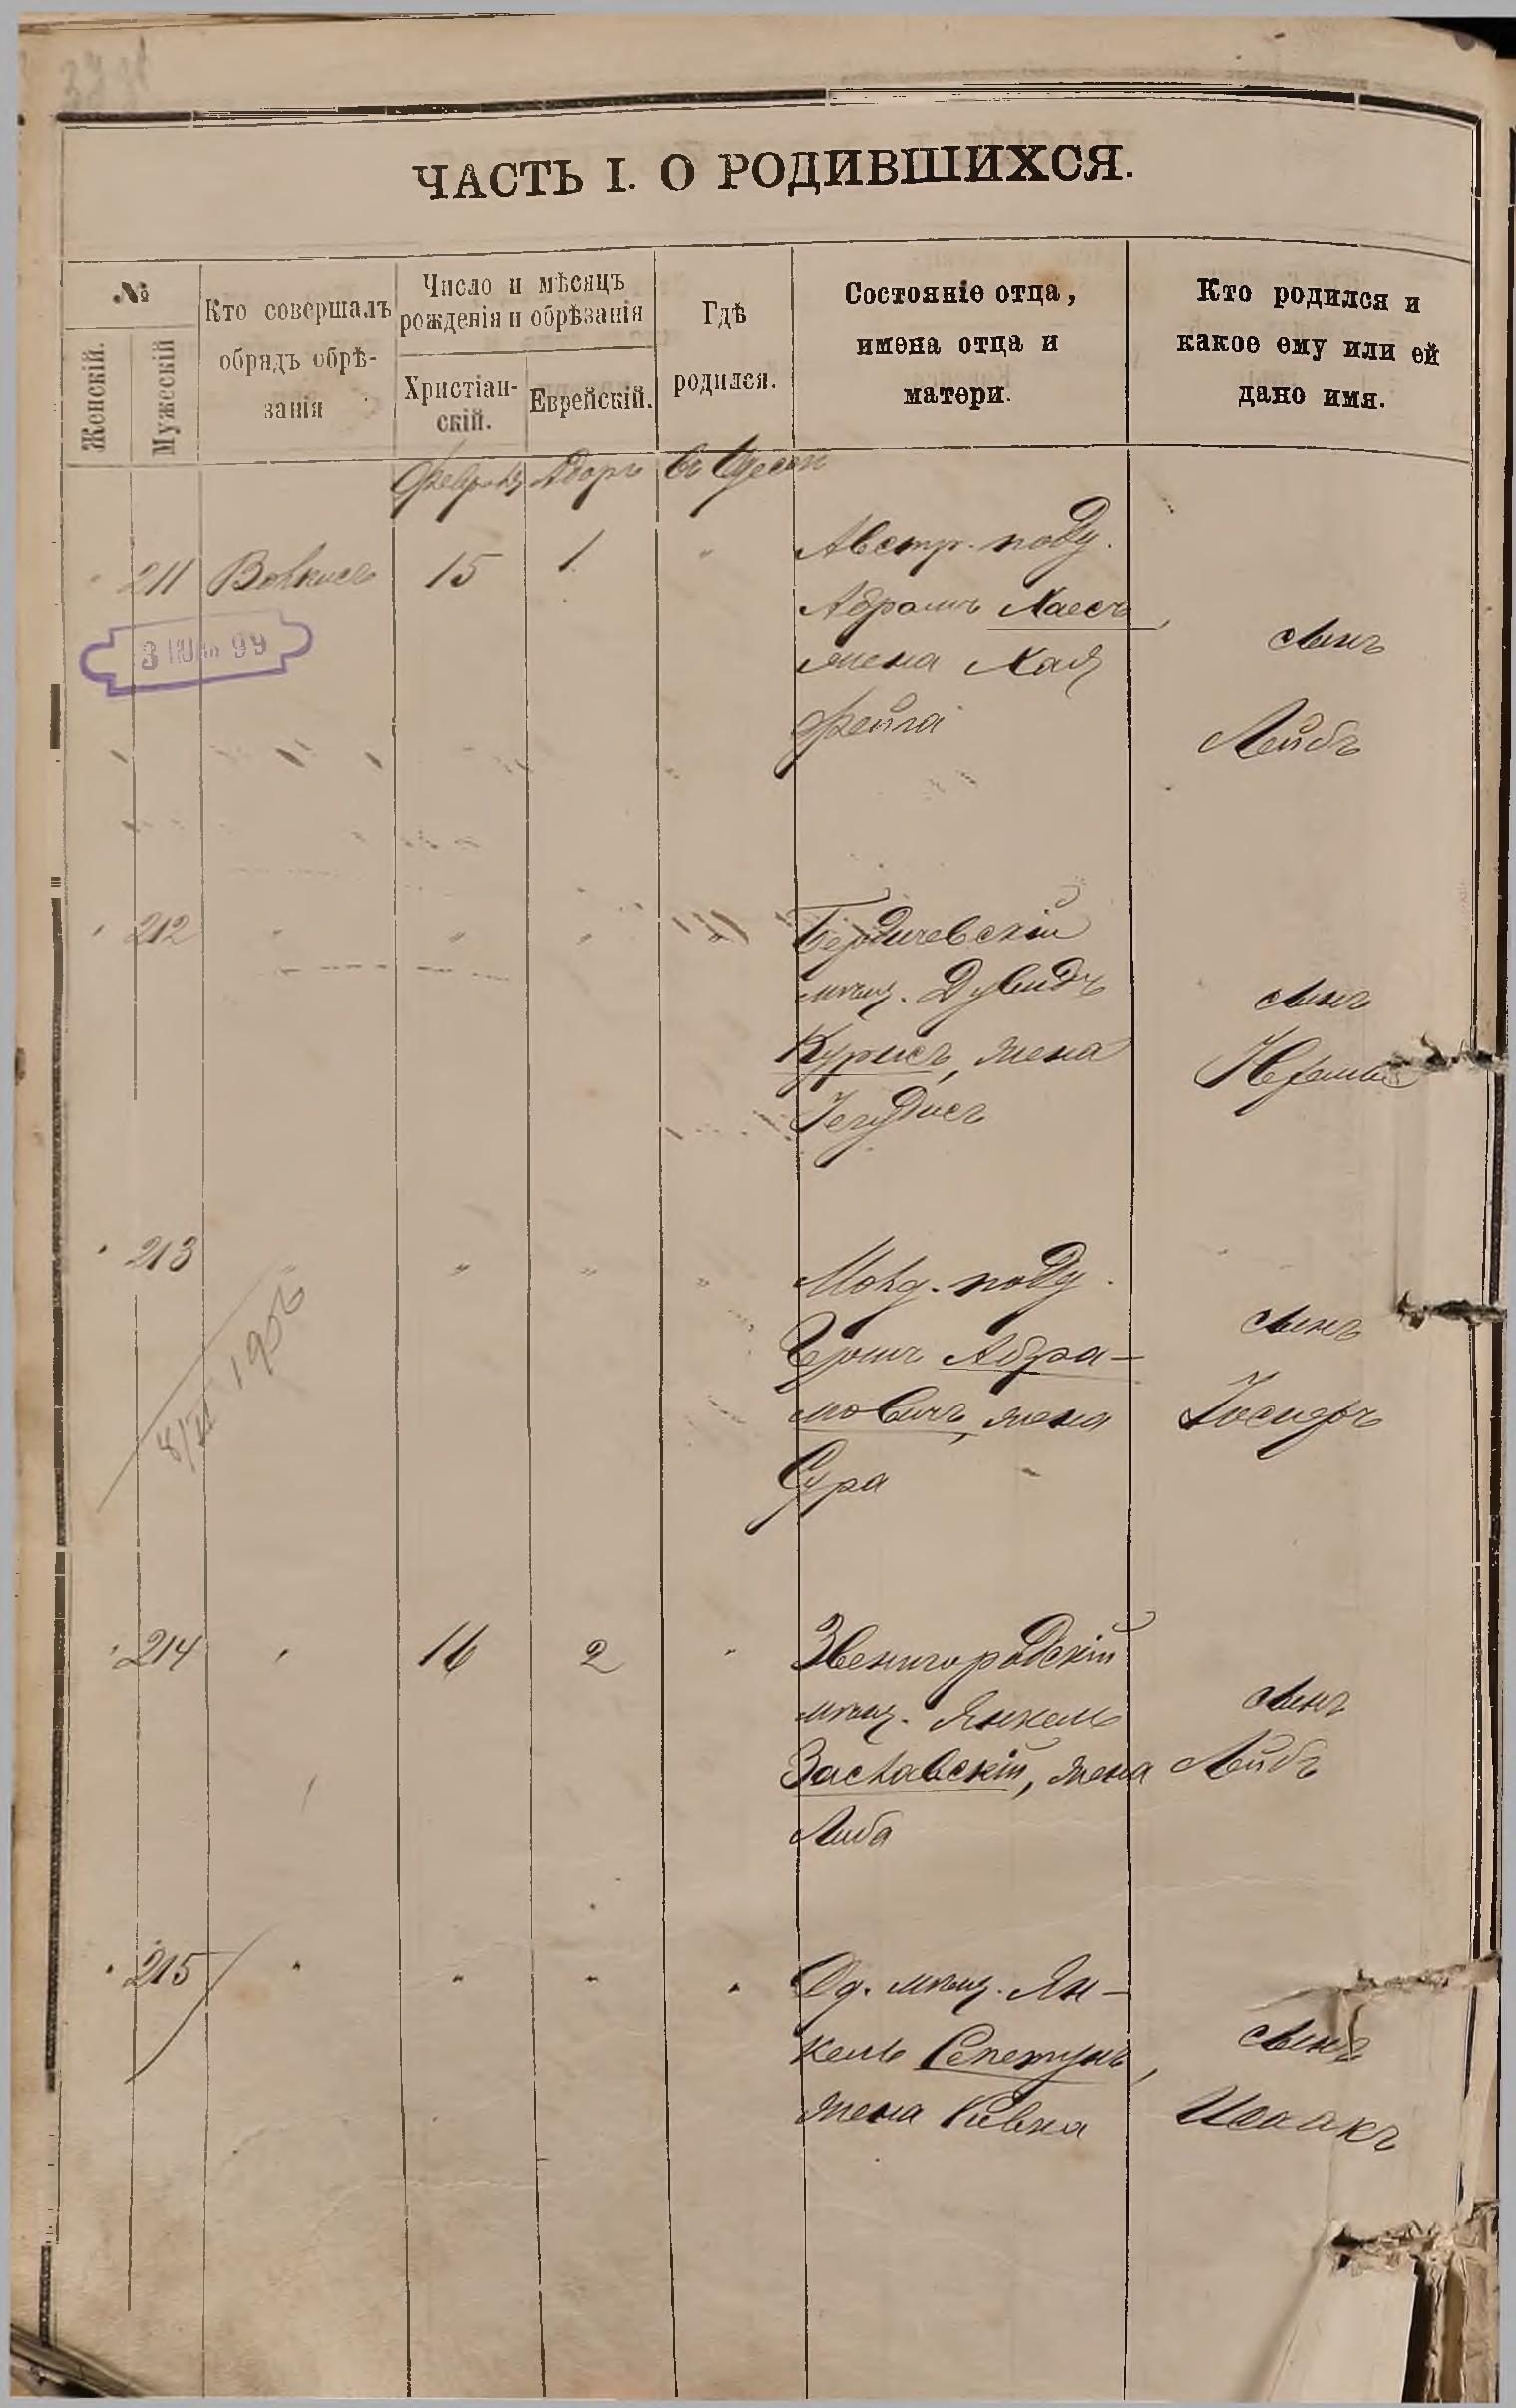 ЧАСТЬ I. О РОДИВШИХСЯ.
№
Женскій.
Мужескій
Кто совершалъ
обрядъ обрѣ-
занія
Число и мѣсяцъ
рожденія и обрѣзанія
Христіан-
скій.
Еврейскій.
Гдѣ
родился.
Состояніе отца,
имена отца и
матери.
Кто родился и
какое ему или ей
дано имя.
Февраля Адаръ въ Одессѣ
211 Волкисъ 15 1 " Австр. подд.
Абрамъ Хаесъ,
жена Хая
Фейга
сынъ
Лейбъ
3 ІЮН 99
212 " " " " Бердичевскій
мѣщ. Дувидъ
Курисъ, жена
Іегудисъ
сынъ
213 " " " " Молд. подд.
Гершъ Абра-
мовичъ, жена
Сура
сынъ
Іосифъ
1906
214 " 16 2 " Звенигородскій
мѣщ. Янкель
Заславскій, жена
Либа
сынъ
Лейбъ
215 " " " " Од. мѣщ. Ян-
кель Сепетунъ,
жена Ривка
сынъ
Исаакъ